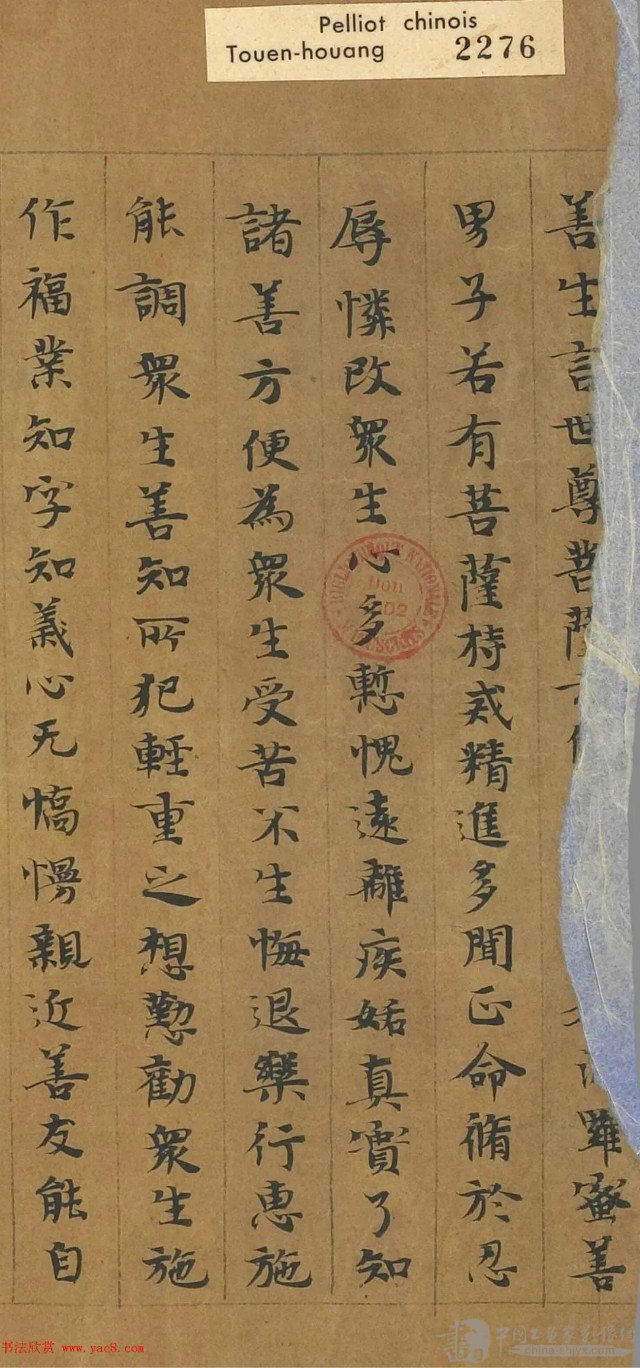 Pelliot chinois
Touen-houang 2276
善生言世尊菩薩羅蜜善
男子若有菩薩持戒精進多聞正命脩於忍
辱憐改衆生心多慙愧遠離疾妬真實了知
諸善方便為衆生受苦不生悔退樂行惠施
能調衆生善知所犯輕重之想懃勸衆生施
作福業知字知義心无憍慢親近善友能自
书法欣赏 www.yac8.com